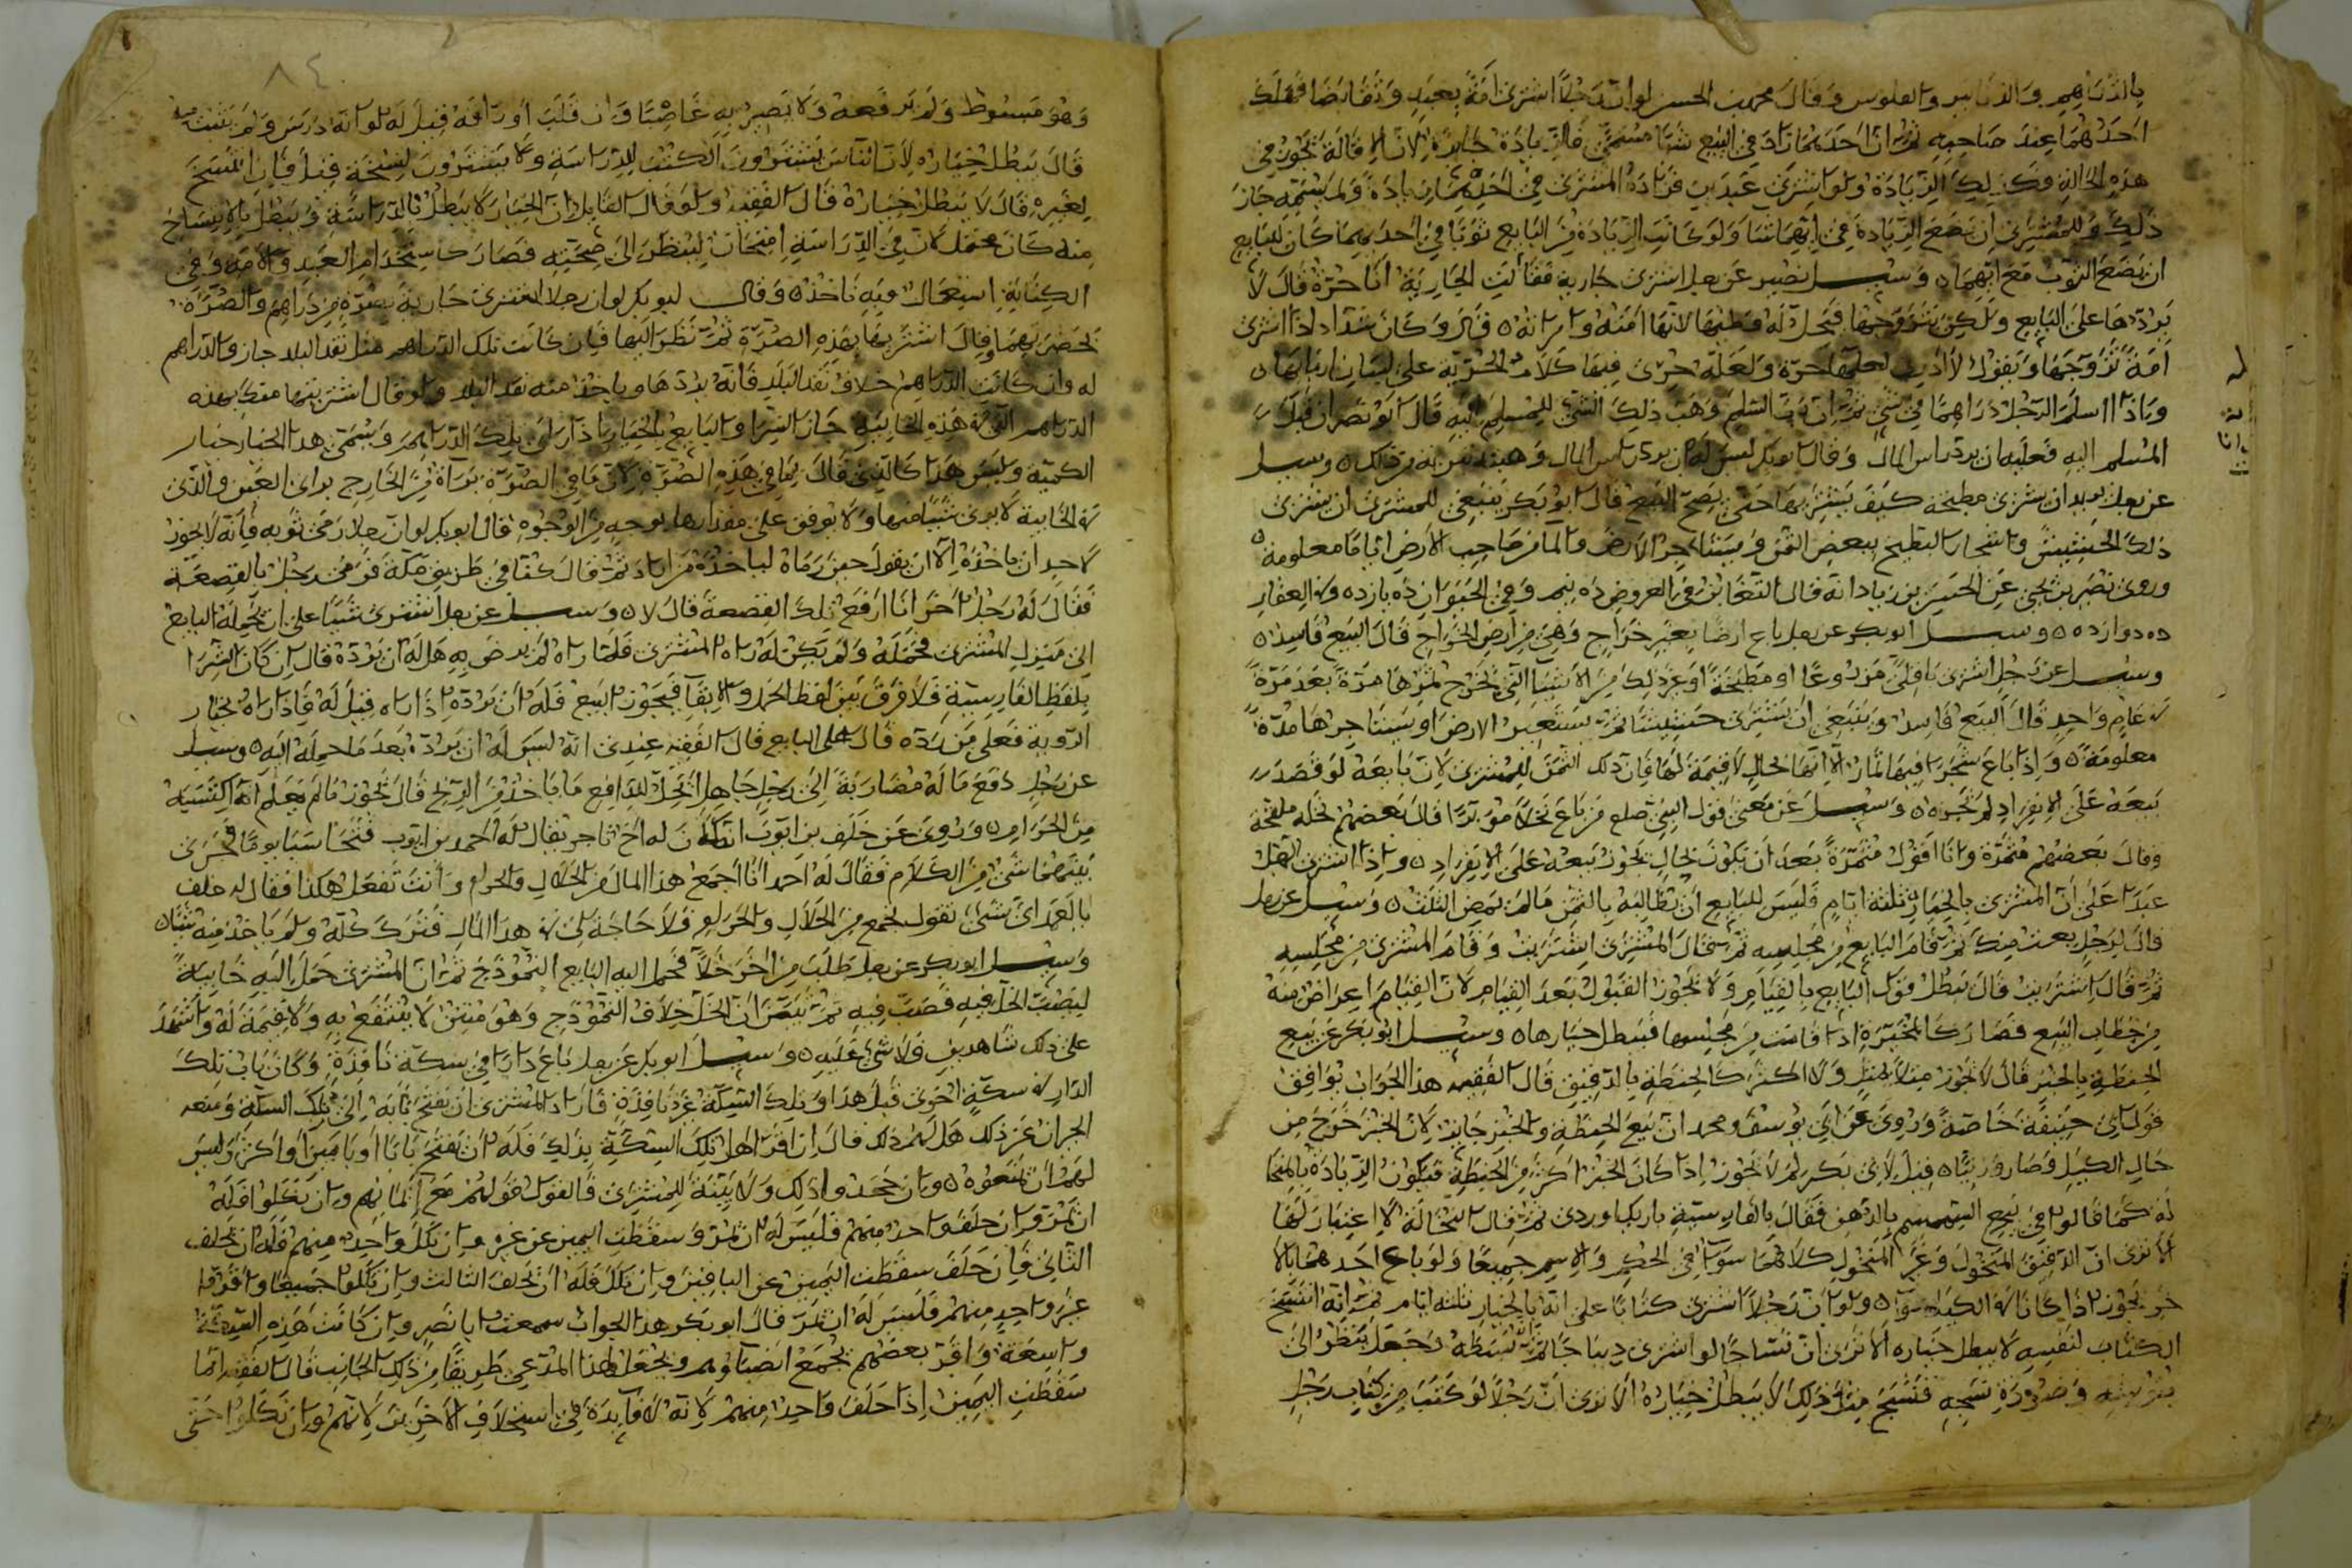 بالدراهم والدنانير والفلوس وقال محمد بن الحسن لو ان رجلا اشترى امة بعبد وتقابضا فهلك
احدهما عند صاحبه ثم ان احدهما زاد في البيع شيا مسمى فالزيادة جايزة لان الاقالة تجوز في
هذه الحالة فكذلك الزيادة ولو اشترى عبدين فزاده المشترى في احدهما زيادة ولم يسمه جاز
ذلك وللمشترى ان يضع الزيادة في ايهما شا ولو كانت الزيادة من البايع ثوبا في احدهما كان للبايع
ان يضع الثوب مع ايهما وسيل نصير عن رجل اشترى جارية فقالت الجارية انا حرة قال لا
يردها على البايع ولكن يتزوجها فيحل له وطيها لانها امته وامراته قال وكان شداد اذا اشترى
امة تزوجها ويقول لا ادرى لعلها حرة ولعله جرى فيها كلام الحرية على لسان اربابها
واذا اسلم الرجل دراهما في شي ثم ان رب السلم وهب ذلك الشي للمسلم اليه قال ابو نصر ان قبل
المسلم اليه فعليه ان يرد راس المال وقال ابو بكر ليس له ان يرد راس المال وسيل
عن رجل يريد ان يشترى مبطخة كيف يشتريها حتى يصح البيع قال ابو بكر ينبغى للمشترى ان يشترى
ذلك الحشيش واشجار البطيخ ببعض الثمن ويستاجر الارض من صاحب الارض اياما معلومة
وروى نصير بن يحيى عن الحسن بن زياد انه قال التغابن في العروض ده نيم وفي الحيوان ده يازده وفي العقار
ده دوازده وسيل ابو بكر عن رجل باع ارضا بغير خراج وهي من ارض الخراج قال البيع فاسد
وسيل عن رجل اشترى باقلى مزروعا او مبطخة او غير ذلك من الاشيا التي تخرج ثمرها مرة بعد مرة
في عام واحد قال البيع فاسد وينبغي ان يشترى حشيشا ثم يستعير الارض او يستاجرها مدة
معلومة واذا باع شجرا فيها ثمار الا انها بحال لا قيمة لها فان ذلك الثمن للمشترى لان بايعه لو قصد
بيعه على الانفراد لم يجز وسيل عن معنى قول النبي صلع من باع نخلا موبرا قال بعضهم نخلة ملقحة
وقال بعضهم مثمرة وانا اقول مثمرة بعد ان تكون بحال يجوز بيعه على الانفراد واذا اشترى الرجل
عبدا على ان المشترى بالخيار ثلثة ايام فليس للبايع ان يطالبه بالثمن مالم يمض الثلث وسيل عن رجل
قال لرجل بعت منك ثم قام البايع من مجلسه ثم قال المشترى اشتريت وقام المشترى من مجلسه
ثم قال اشتريت قال يبطل قول البايع بالقيام ولا يجوز القبول بعد القيام لان القيام اعراض منه
من خطاب البيع فصار كالمخيرة اذا قامت من مجلسها فيبطل خيارها وسيل ابو بكر عن بيع
الحنطة بالخبز قال لا يجوز مثلا بمثل ولا اكثر كالحنطة بالدقيق قال الفقيه هذا الجواب يوافق
قول ابي حنيفة خاصة وروى عن ابي يوسف ومحمد ان بيع الحنطة والخبز جايز لان الخبز خرج من
حال الكيل فصار وزنيا قيل لابي بكر لم لا يجوز اذا كان الخبز اكثر من الحنطة فيكون الزيادة
له كما قالوا في بيع السمسم بالدهن فقال بالفارسية ثم قال النخالة لا اعتبار لها
الا ترى ان الدقيق المنخول وغير المنخول كلاهما سوا في الحكم والاسم جميعا ولو باع احدهما بالا
خر يجوز اذا كانا في الكيل سوا ولو ان رجلا اشترى كتابا على انه بالخيار ثلثة ايام ثم انه انتسخ
الكتاب لنفسه لا يبطل خياره الا ترى ان نساجا لو اشترى ديباجا ثم بسطه وجعل ينظر الى
نقشه وصورة نسجه فنسج مثل ذلك لا يبطل خياره الا ترى ان رجلا لو كتب من كتاب رجل
٨٤
وهو مبسوط ولم يرفعه ولا يصير به غاصبا وان قلب اوراقه قيل له لو انه درس ولم ينتسخ
قال يبطل خياره لان الناس يشترون الكتب للدراسة ولا يشترون لنسخة قيل فان انتسخ
لغيره قال لا يبطل خياره قال الفقيه ولو قال القايل ان الخيار لا يبطل بالدراسة ويبطل بالانتساخ
منه كان محتمل لان في الدراسة امتحان لينظر الى صحته فصار كاستخدام العبد والامة وفي
الكتابة استعمال فيه ناخذ وقال ابو بكر لو ان رجلا اشترى جارية بصرة من دراهم والصرة
بحضرتهما وقال اشتريتها بهذه الصرة ثم نظر اليها فان كانت تلك الدراهم مثل نقد البلد جاز والدراهم
له وان كانت الدراهم خلاف نقد البلد فانه يردها وياخذ منه نقد البلد ولو قال اشتريتها منك بهذه
الدراهم التي في هذه الخابية جاز الشرا والبايع بالخيار اذا راى تلك الدراهم ويسمى هذا الخيار خيار
الكمية وليس هذا كالذى قال بما في هذه الصرة لان ما في الصرة يراه من الخارج يراى العين والذى
في الخابية لا يرى شيا منها ولا يوقف على مقدارها بوجه من الوجوه قال ابو بكر لو ان رجلا رمى ثوبه فانه لا يجوز
لاحد ان ياخذه الا ان يقول حين رماه لياخذه من اراد ثم قال كنا في طريق مكة فرمى رجل بالقصعة
فقال له رجل اخر انا ارفع تلك القصعة قال لا وسيل عن رجل اشترى شيا على ان يحمله البايع
الى منزل المشترى فحمله ولم يكن له راه المشترى فلما راه لم يرض به هل له ان يرده قال ان كان الشرا
بلفظ الفارسية فلا فرق بين لفظ الحمل والايفا فيجوز البيع فله ان يرده اذا راه قيل له فاذا راه بخيار
الروية فعلى من رده قال على البايع قال الفقيه عندى انه ليس له ان يرده بعد ما حمله اليه وسيل
عن رجل دفع ماله مضاربة الى رجل جاهل ايحل للدافع ما ياخذ من الربح قال يجوز مالم يعلم انه اكتسبه
من الحرام وروى عن خلف بن ايوب انه كان له اخ تاجر يقال له احمد بن ايوب فتحاسبا يوما فجرى
بينهما شي من الكلام فقال له احمد انا اجمع هذا المال من الحلال والحرام وانت تفعل هكذا فقال له خلف
بالعمد اى شي تقول تجمع من الحلال والحرام فلا حاجة لى في هذا المال فترك كله ولم ياخذ منه شيا
وسيل ابو بكر عن رجل طلب من اخر خلا فحمل اليه البايع النموذج ثم ان المشترى حمل اليه خابية
ليصب الخل فيه فصب فيه ثم تبين ان الخل خلاف النموذج وهو منتن لا ينتفع به ولا قيمة له واشهد
على ذلك شاهدين فلا شي عليه وسيل ابو بكر عن رجل باع دارا في سكة نافذة وكان باب تلك
الدار في سكة اخرى قبل هذا وتلك السكة غير نافذة فاراد المشترى ان يفتح بابه الى تلك السكة ومنعه
الجيران عن ذلك هل لهم ذلك قال ان اقر اهل تلك السكة بذلك فله ان يفتح بابا او بابين او اكثر وليس
لهم ان يمنعوه وان جحدوا ذلك ولا بينة للمشترى فالقول قولهم مع ايمانهم وان نكلوا فله
ان يمر وان حلف واحد منهم فليس له ان يمر وسقطت اليمين عن غيره وان نكل واحد منهم فله ان يحلف
الثاني فان حلف سقطت اليمين عن الباقين وان نكل فله ان يحلف الثالث وان نكلوا جميعا واقروا
غير واحد منهم فليس له ان يمر قال ابو بكر هذا الجواب سمعت ابا نصر وان كانت هذه السكة
واسعة واقر بعضهم يجمع انصباوهم ويجعل لهذا المدعي طريقا من ذلك الجانب قال الفقيه انما
سقطت اليمين اذا حلف واحد منهم لانه لا فايدة في استحلاف الاخرين لانهم وان نكلوا حتى